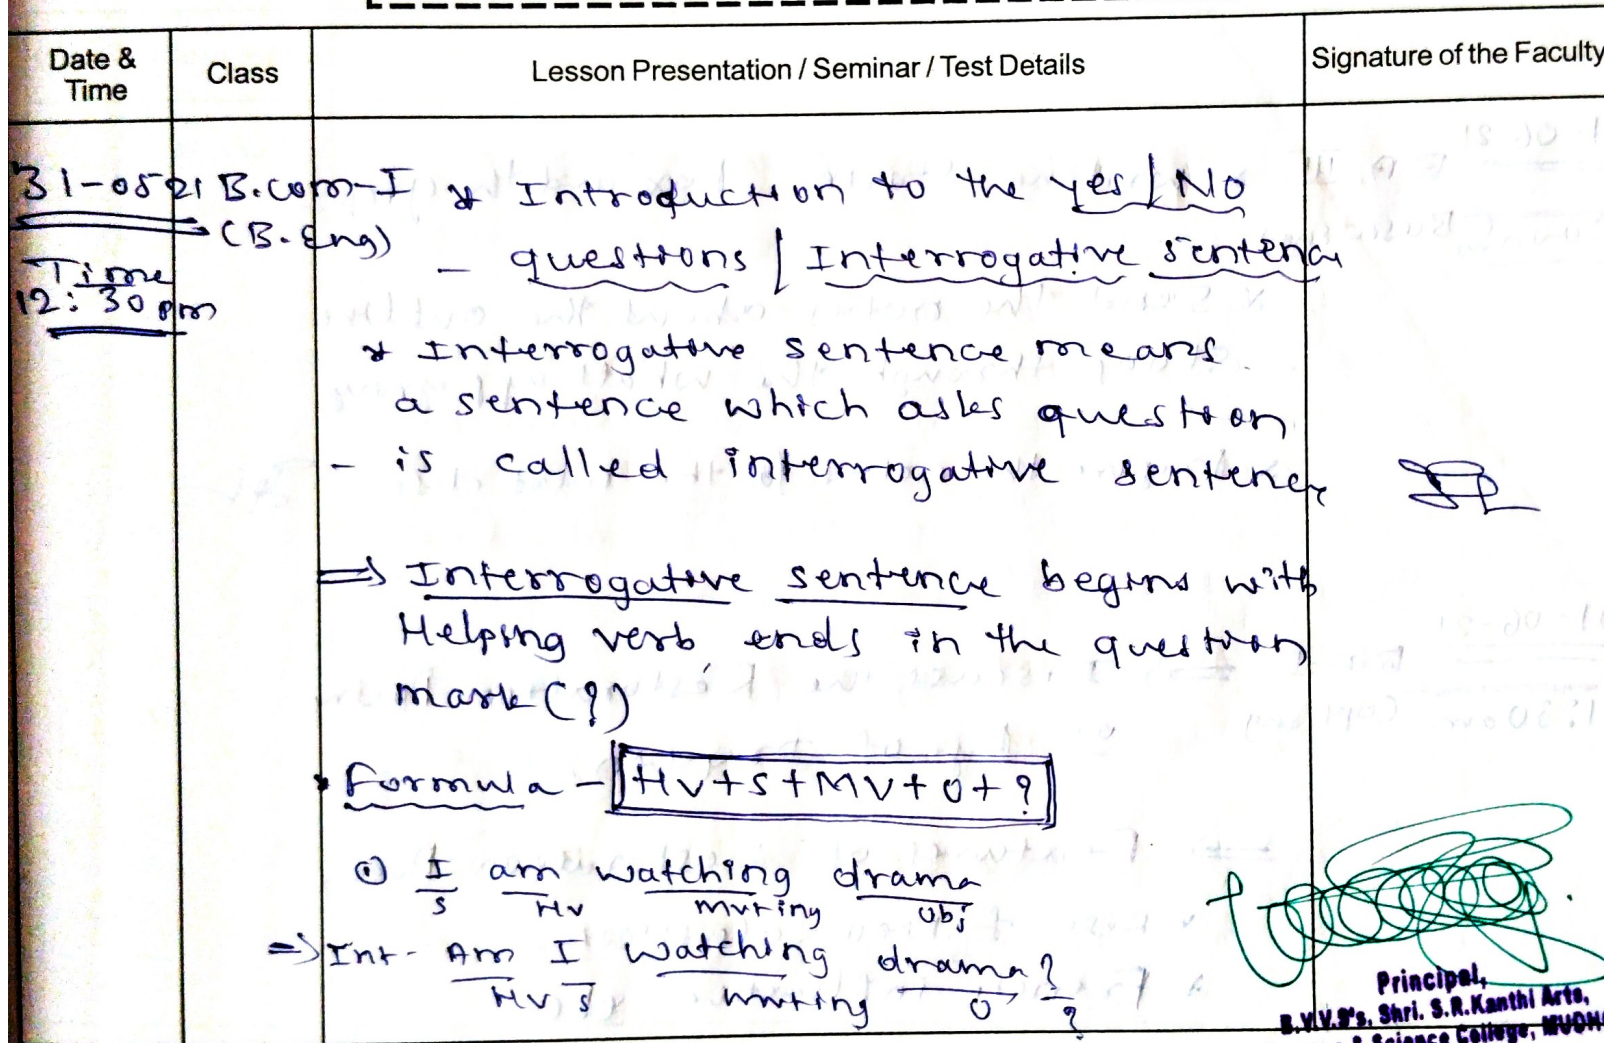 Date & Time
Class
Lesson Presentation / Seminar / Test Details
Signature of the Faculty
31-0521 B.com-I * Introduction to the yes/No
(B.Eng)
- questions / Interrogative sentence
Time
12:30 pm
* Interrogative sentence means
a sentence which asks question
- is called interrogative sentence
⇒ Interrogative sentence begins with
Helping verb, ends in the question
mark (?)
• Formula - HV+S+MV+O+?
① I am watching drama
S HV MV+ing Obj
⇒ Int- Am I watching drama?
HV S MV+ing O ?
Principal,
B.V.V.S's, Shri. S.R.Kanthi Arts,
& Science College,